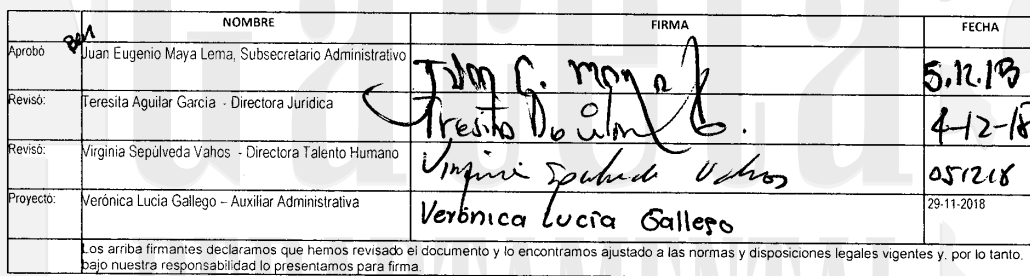 NOMBRE FIRMA FECHA
Aprobó Juan Eugenio Maya Lema, Subsecretario Administrativo 5.12.18
Revisó: Teresita Aguilar Garcia - Directora Jurídica 4-12-18
Revisó: Virginia Sepúlveda Vahos - Directora Talento Humano Virginia Sepulveda Vahos 051218
Proyectó: Verónica Lucia Gallego – Auxiliar Administrativa Verónica Lucía Gallego 29-11-2018
Los arriba firmantes declaramos que hemos revisado el documento y lo encontramos ajustado a las normas y disposiciones legales vigentes y, por lo tanto,
bajo nuestra responsabilidad lo presentamos para firma.